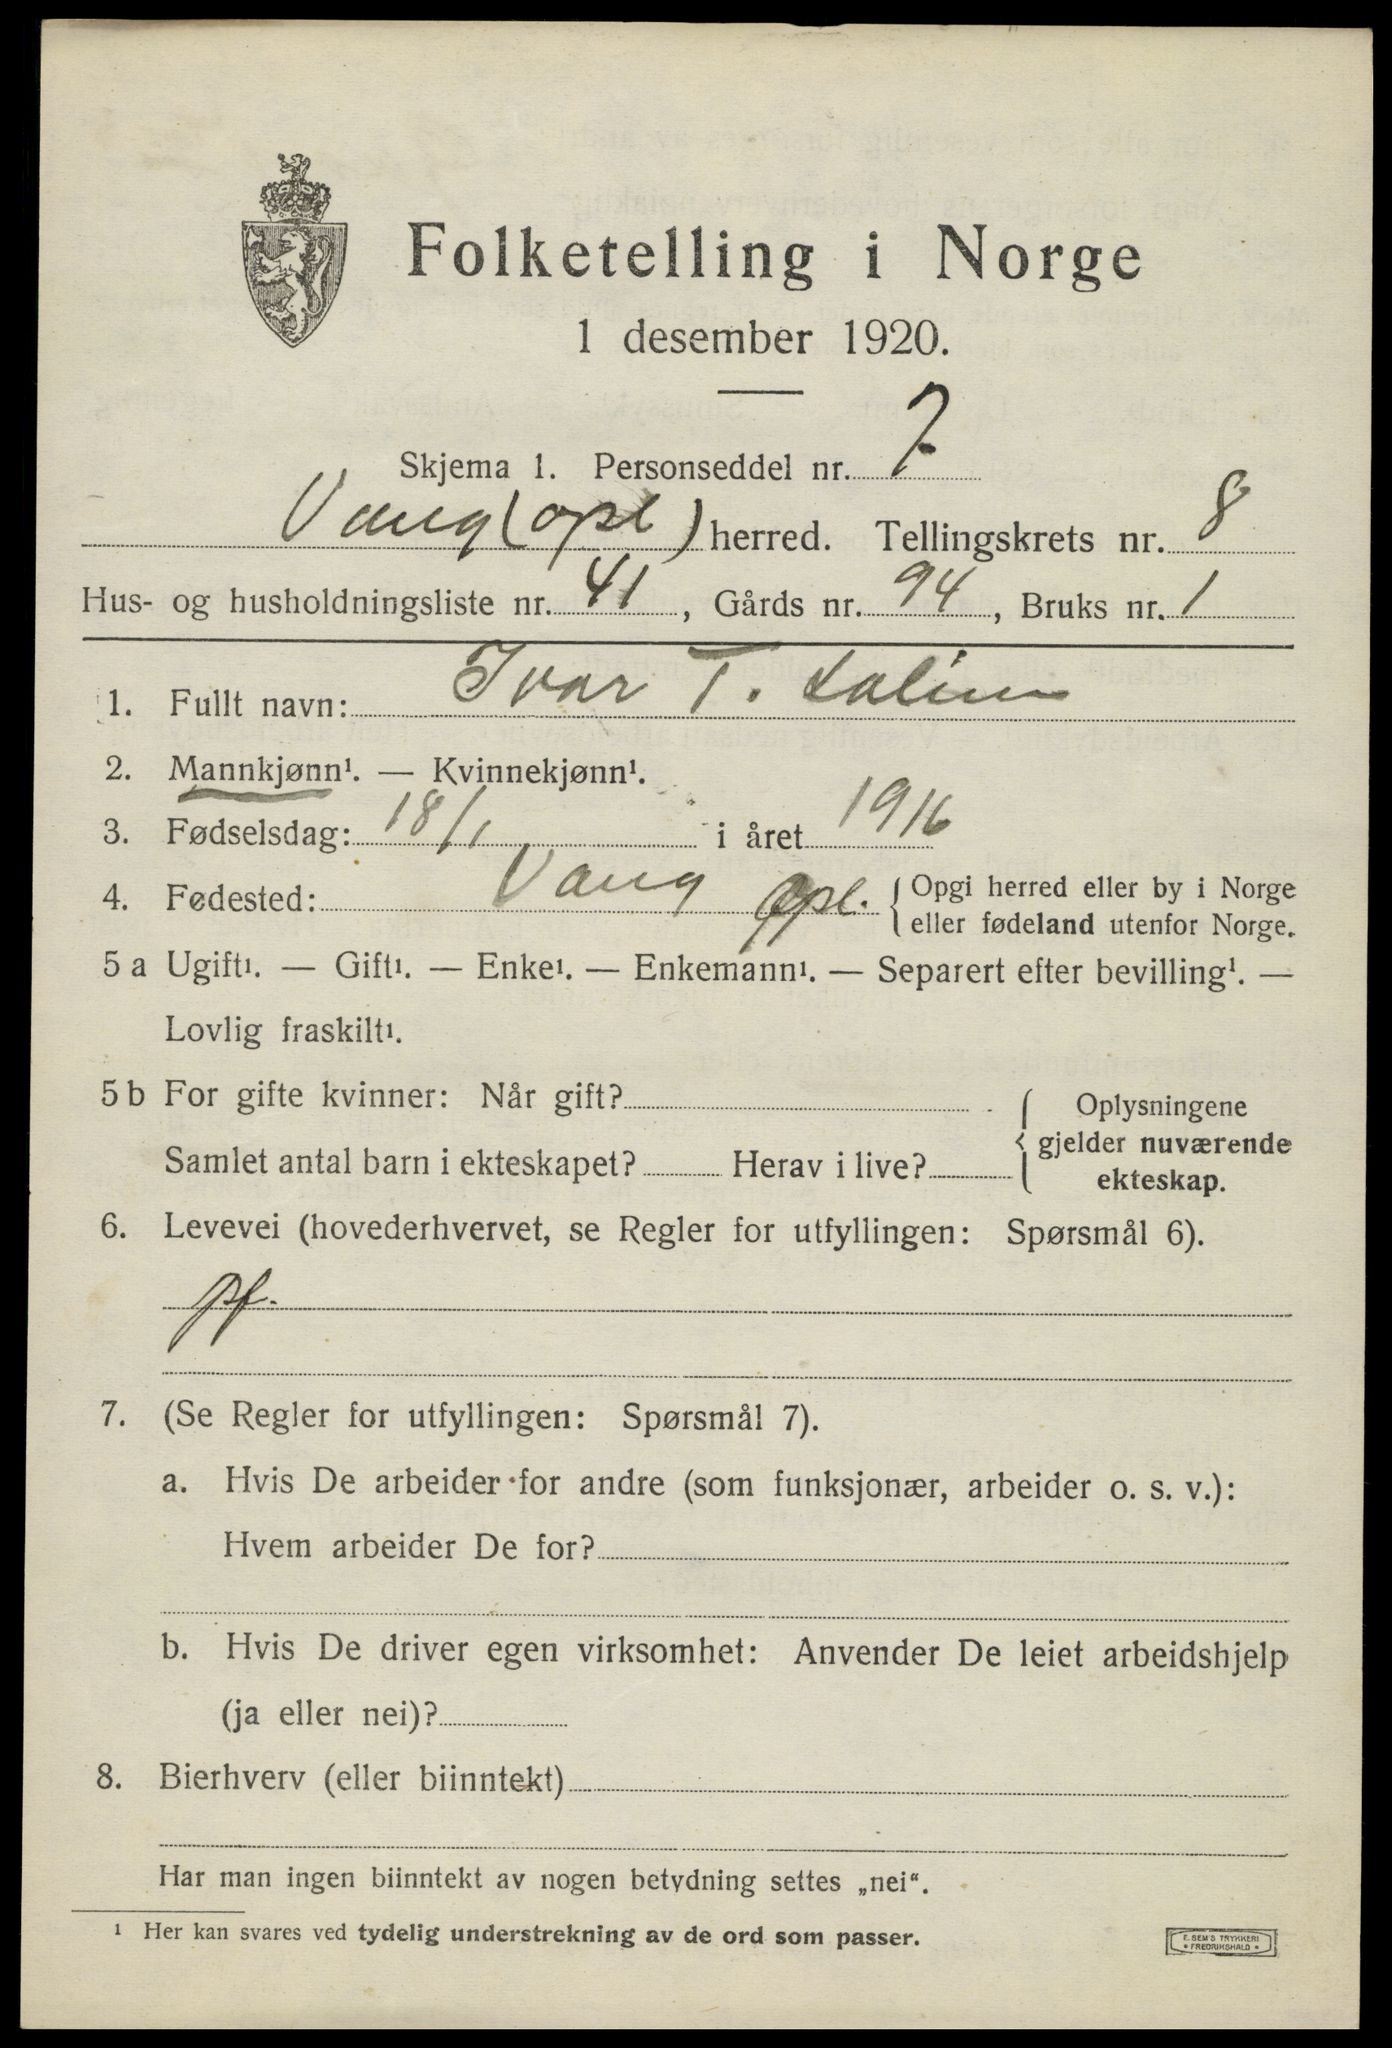 Folketelling i Norge
1 desember 1920.
Skjema 1. Personseddel nr. 7
Vang (opl) herred. Tellingskrets nr. 8
Hus- og husholdningsliste nr. 41, Gårds nr. 94, Bruks nr. 1
1. Fullt navn: Ivar T.
2. Mannkjønn¹. — Kvinnekjønn¹.
3. Fødselsdag: 18/1 i året 1916
4. Fødested: Vang Opl. { Opgi herred eller by i Norge
eller fødeland utenfor Norge.
5 a Ugift¹. — Gift¹. — Enke¹. — Enkemann¹. — Separert efter bevilling¹. —
Lovlig fraskilt¹.
5 b For gifte kvinner: Når gift?
Samlet antal barn i ekteskapet? Herav i live?
{ Oplysningene
gjelder nuværende
ekteskap.
6. Levevei (hovederhvervet, se Regler for utfyllingen: Spørsmål 6).
pf.
7. (Se Regler for utfyllingen: Spørsmål 7).
a. Hvis De arbeider for andre (som funksjonær, arbeider o. s. v.):
Hvem arbeider De for?
b. Hvis De driver egen virksomhet: Anvender De leiet arbeidshjelp
(ja eller nei)?
8. Bierhverv (eller biinntekt)
Har man ingen biinntekt av nogen betydning settes „nei“.
¹ Her kan svares ved tydelig understrekning av de ord som passer.
E. SEM'S TRYKKERI
* FREDRIKSHALD *